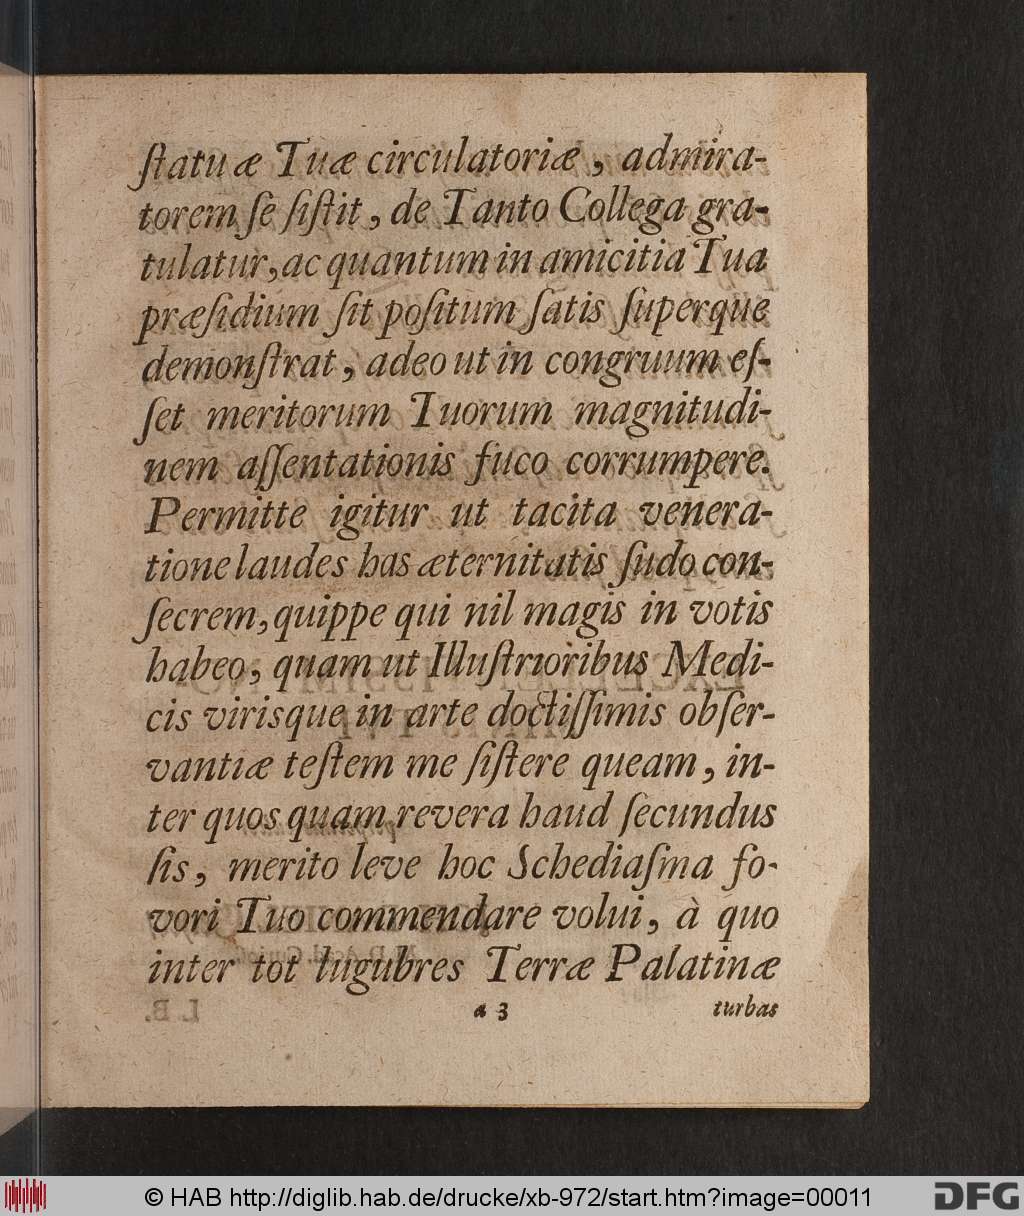 ſtatuæ Tuæ circulatoriæ, admira-
torem ſe ſiſtit, de Tanto Collega gra-
tulatur, ac quantum in amicitia Tua
præſidium ſit poſitum ſatis ſuperque
demonſtrat, adeo ut in congruum eſ-
ſet meritorum Tuorum magnitudi-
nem aſſentationis fuco corrumpere.
Permitte igitur ut tacita venera-
tione laudes has æternitatis ſudo con-
ſecrem, quippe qui nil magis in votis
habeo, quam ut Illuſtrioribus Medi-
cis virisque in arte doctiſſimis obſer-
vantiæ teſtem me ſiſtere queam, in-
ter quos quam revera haud ſecundus
ſis, merito leve hoc Schediaſma fo-
vori Tuo commendare volui, à quo
inter tot lugubres Terræ Palatinæ
a 3 turbas
© HAB http://diglib.hab.de/drucke/xb-972/start.htm?image=00011
DFG